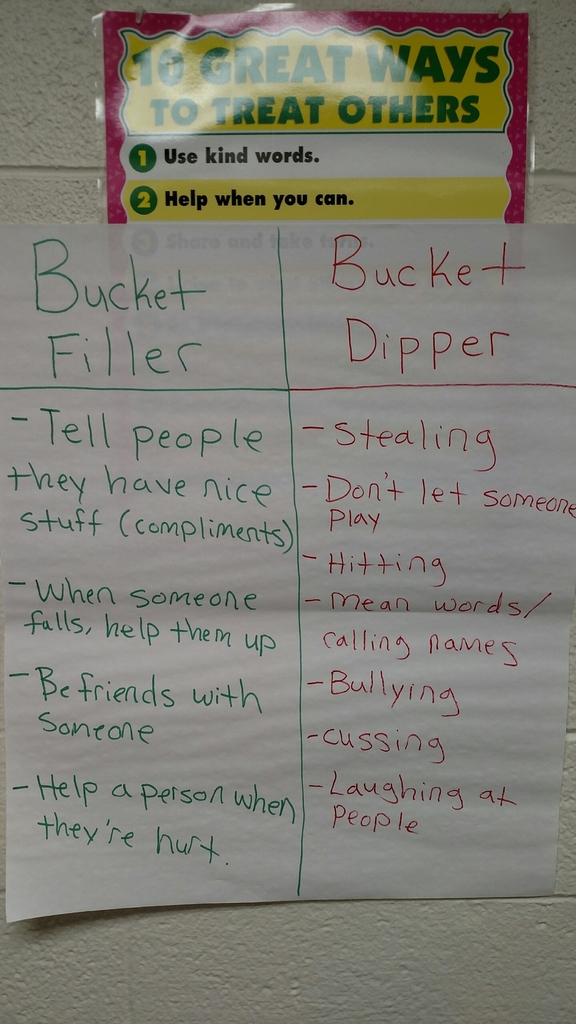 10 GREAT WAYS
TO TREAT OTHERS
1 Use kind words.
2 Help when you can.
3 Share and take turns.
Bucket
Filler
- Tell people
they have nice
stuff (compliments)
- When someone
falls, help them up
- Be friends with
Someone
- Help a person when
they're hurt.
Bucket
Dipper
- Stealing
- Don't let someone
Play
- Hitting
- mean words/
calling names
- Bullying
- cussing
- Laughing at
People